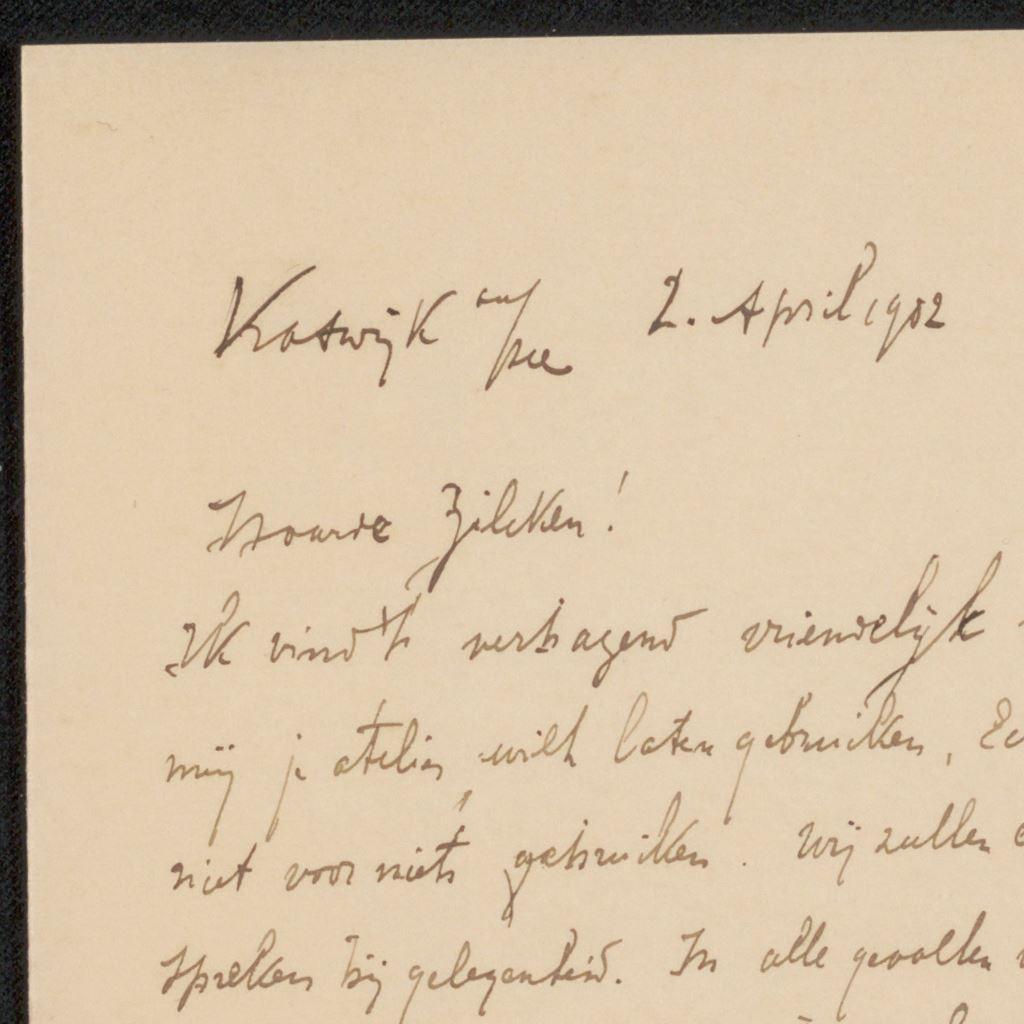 Katwijk a/zee 2. April 1902
Waarde Zilcken!
Ik vind 't verbazend vriendelijk
mij je atelier wilt laten gebruiken,
niet voor niets gebruiken. Wij zullen
spreken bij gelegenheid. In alle gevallen